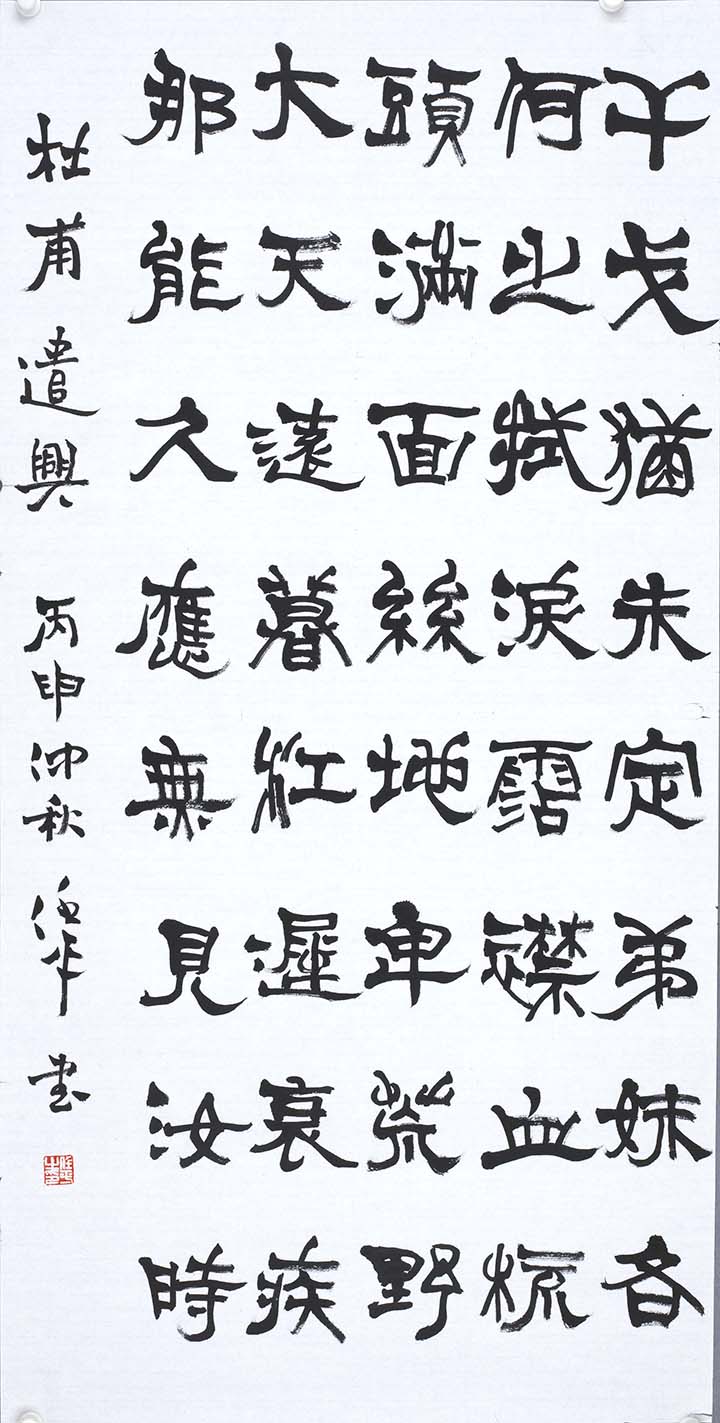 干戈猶未定弟妹各
何之拭淚霑襟血梳
頭滿面絲地卑荒野
大天遠暮江遲衰疾
那能久應無見汝時
杜甫遣興 丙申仲秋 書